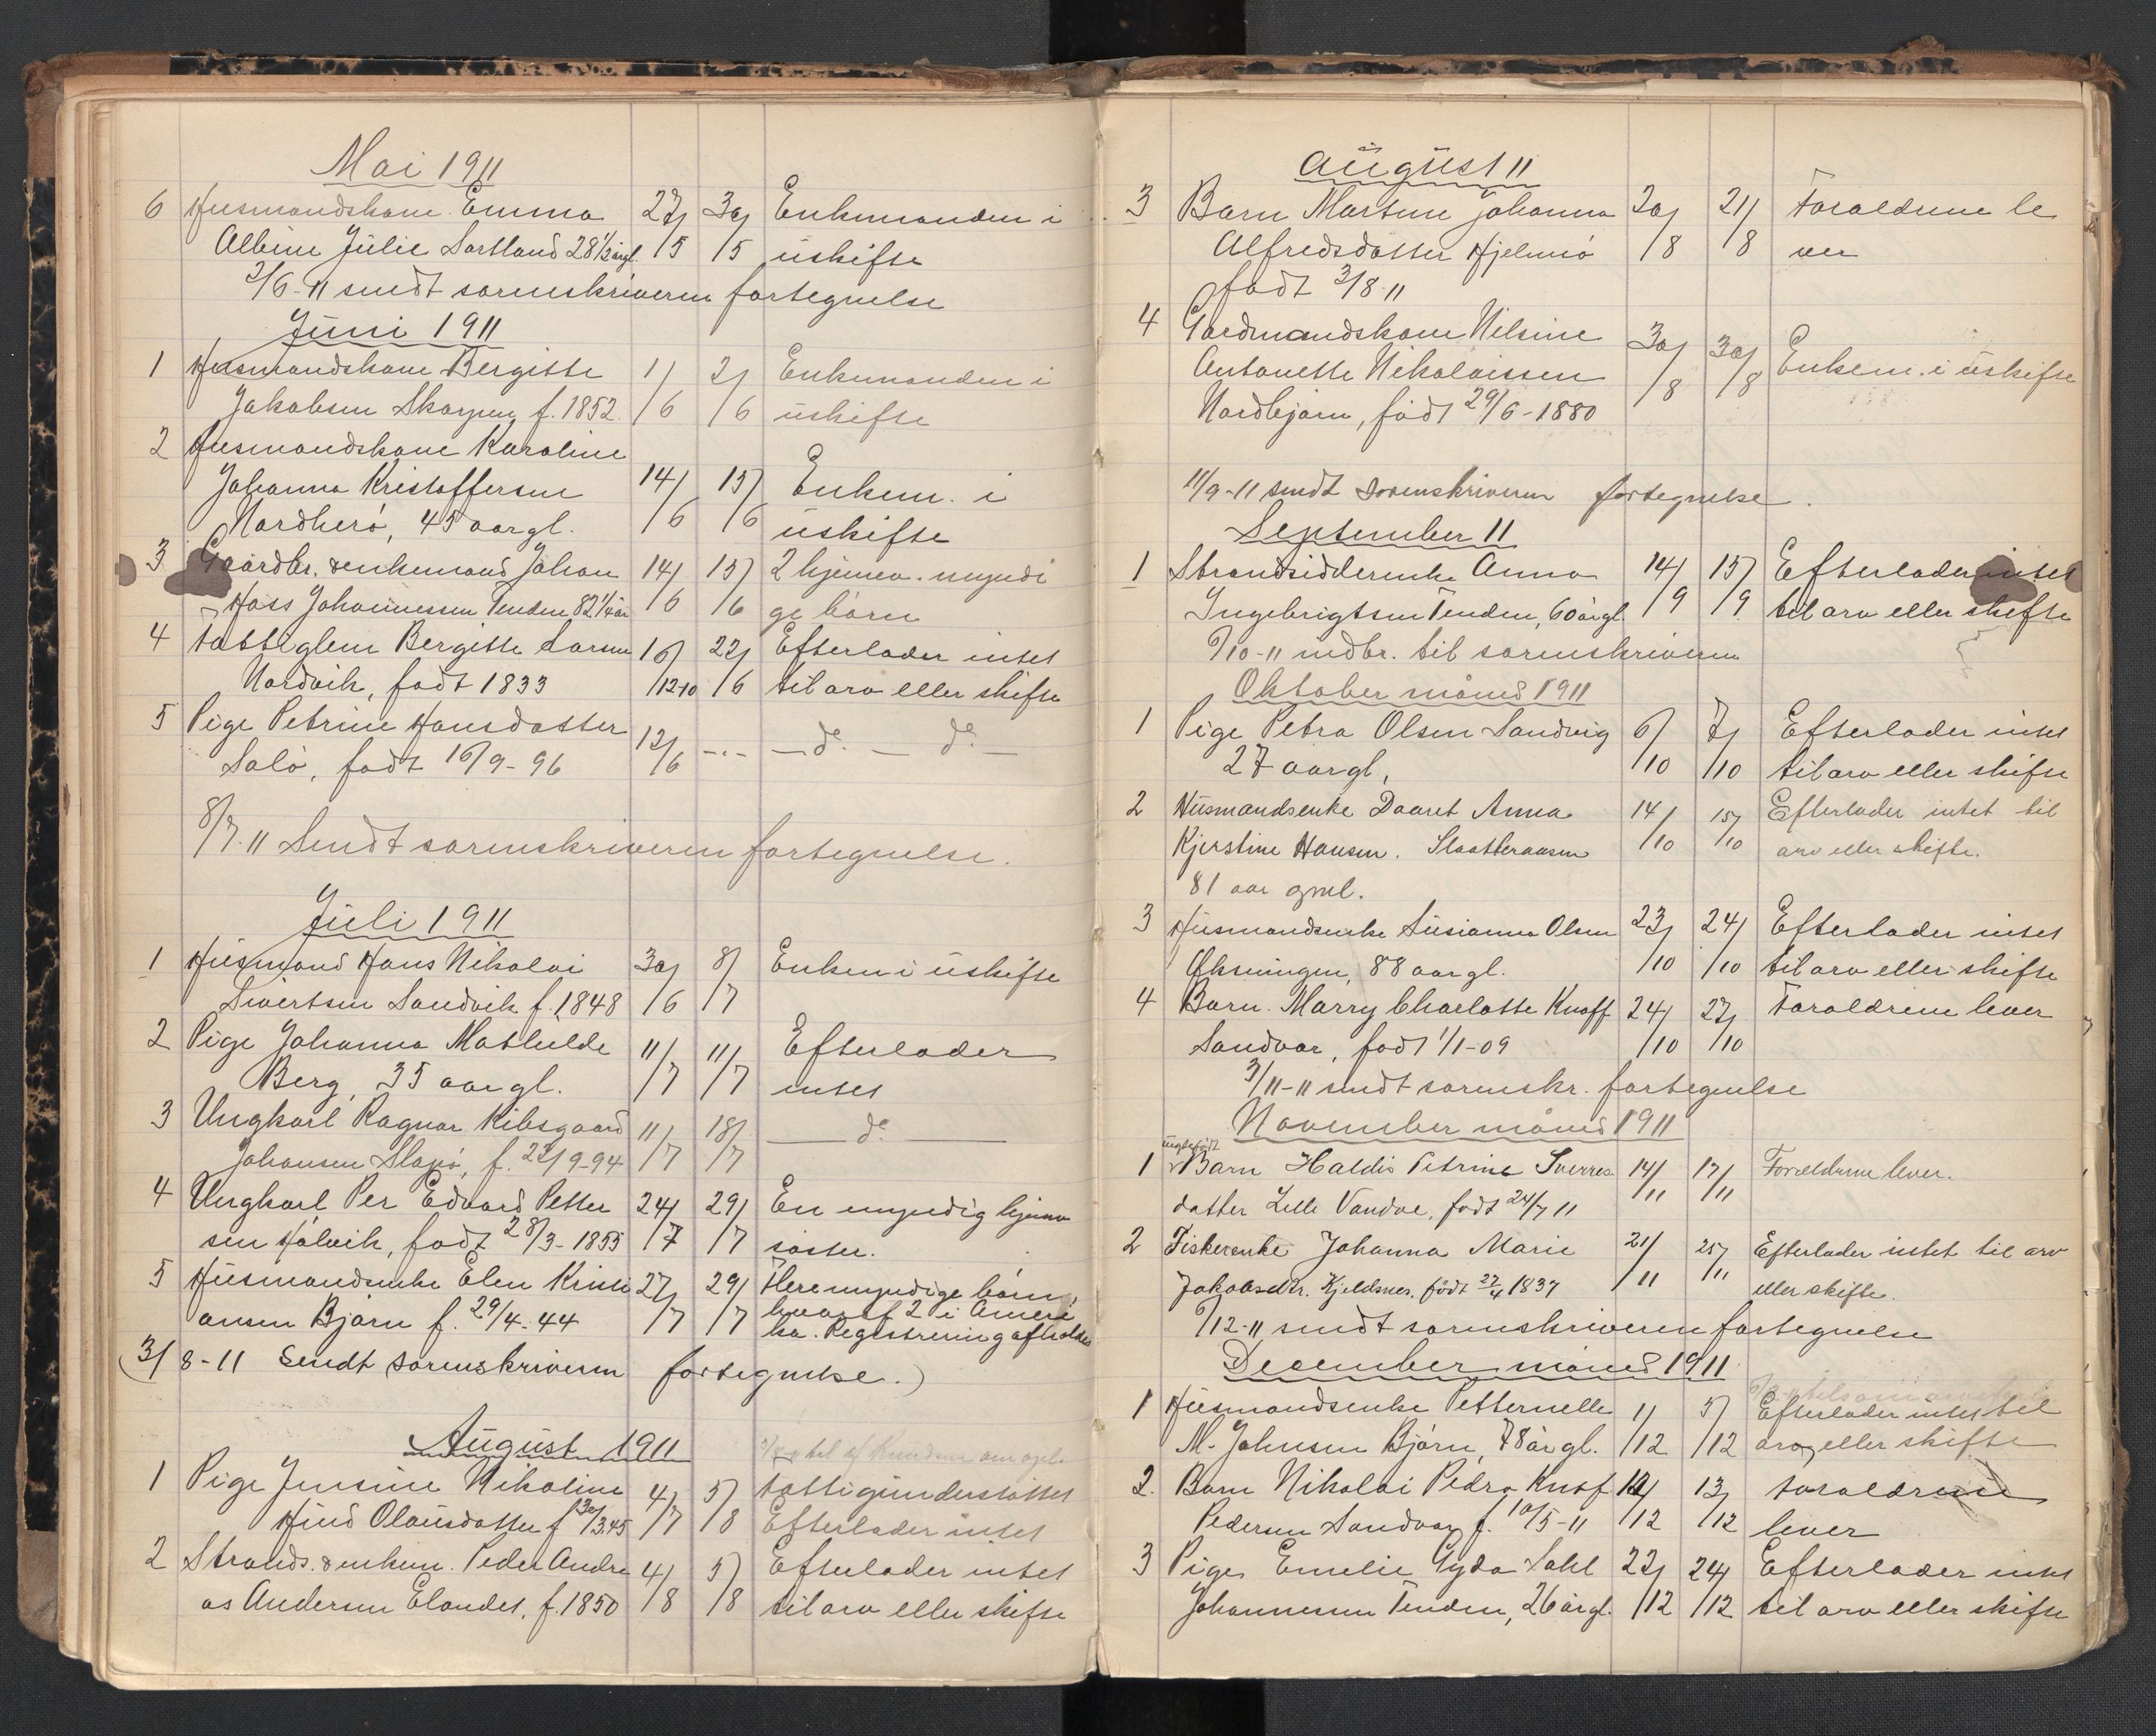 Mai 1911
6 Husmandskone Emma 27/5 30/5 Enkemanden i
Albine Julie Sortland 28 1/2 årgl. uskifte
2/6-11 sendt sorenskriveren fortegnelse
Juni 1911
1 Husmandskone Bergitte 1/6 2/6 Enkemanden i
Jakobsen Skarpen f. 1852. uskifte
2 Husmandskone Karoline
Johanna Kristoffersen 14/6 15/6 Enkem. i
Nordherø, 45 aar gl. uskifte
3 Gaardbr. & enkemand Johan 14/6 15/6 2 hjemmev. myndi
Hass Johannessen Tenden 82 1/4 år ge børn
4 Fattiglem Bergitte Larsen 16/12-10 22/6 Efterlader intet
Nordvik, født 1833 til arv eller skifte
5 Pige Petrine Hansdatter 12/6 -..- — do. — do. —
Salø, født 16/9-96
8/7.11 Sendt sorenskriveren fortegnelse.
Juli 1911
1 Husmand Hans Nikolai 30/6 8/7 Enken i uskifte
Sivertsen Sandvik f. 1848
2 Pige Johanna Mathilde 11/7 11/7 Efterlader
Berg, 35 aar gl. intet
3 Ungkarl Ragnar Kibsgaard 11/7 18/7 — do. —
Johansen Slapø, f. 23/9-94
4 Ungkarl Per Edvard Petter 24/7 29/7 En myndig hjemme
sen Hålvik, født 28/3-1855 søster.
5 Husmandsenke Elen Kristi 27/7 29/7 Flere myndige børn,
ansen Bjørn f. 29/4-44 hvoraf 2 i Ameri
ka. Registrering afholdes
(3/8-11 Sendt sorenskriveren fortegnelse.)
August 1911
1 Pige Jensine Nikoline 4/7 5/8 Fattigunderstøttet
Hind Olausdatter f 30/3.45 Efterlader intet
2 Strands. & enkem. Peder Andre 4/8 5/8 Efterlader intet
as Andersen Elandet, f. 1850 til arv eller skifte
August 11
3 Barn Martine Johanna 20/8 21/8 Forældrene le
Alfredsdatter Hjelmsø ver
født 3/8-11
4 Gardmandskone Nilsine 30/8 30/8 Enkem. i uskifte
Antonette Nikolaissen
Nordbjørn, født 29/6-1880
11/9-11 sendt sorenskriveren fortegnelse.
September 11
1 Strandsidderenke Anna 14/9 15/9 Efterlader intet
Ingebrigtsen Tenden, 60 årgl. til arv eller skifte
6/10-11 indbr. til sorenskriveren
Oktober måned 1911
1 Pige Petra Olsen Sandvig 6/10 7/10 Efterlader intet
27 aar gl, til arv eller skifte
2 Husmandsenke Daaret Anna 14/10 15/10 Efterlader intet til
Kjerstine Hansen. Slaatteraasen arv eller skifte.
81 aar gml.
3 Husmandsenke Susianna Olsen 23/10 24/10 Efterlader intet
Øksningen, 88 aar gl. til arv eller skifte
4 Barn. Marry Charlotte Knoff 24/10 27/10 Forældrene lever
Sandvær, født 1/1-09
3/11-11 sendt sorenskr. fortegnelse
November måned 1911
ugteføtt
1 Barn Haldis Petrine Sverres 14/11 17/11 Forældrene lever.
datter Lille Vandve, født 24/7 11
2 Fiskerenke Johanna Marie 21/11 25/11 Efterlader intet til arv
Jakobsdtr. Kjeldsnes. født 27/4 1837 eller skifte.
6/12-11 sendt sorenskriveren fortegnelse
December måned 1911
1 Husmandsenke Petternelle 1/12 5/12 Efterlader intet til
M. Johnsen Bjørn, 78 år gl. arv, eller skifte
2. Barn Nikolai Pedro Knoff 12/12 13/12 Forældrene
Pedersen Sandvær f. 10/5-11 lever
3 Pige Emelie Gyda Dahl 22/12 24/12 Efterlader intet
Johannesen Tenden, 26 årgl. til arv eller skifte